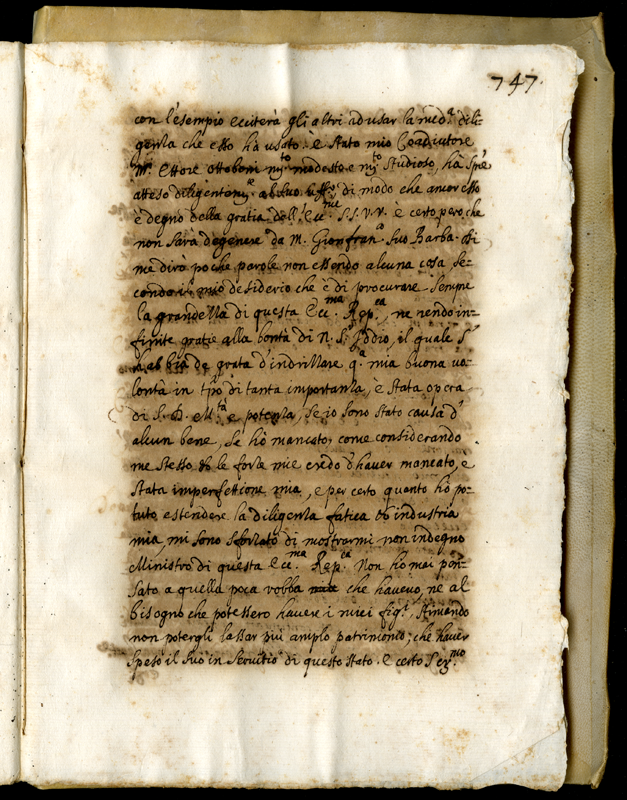 747.
con l'esempio ecciterà gli altri ad usar la med.ª dili=
genza che esso hà usato. è stato mio Coadiutore
M. Ettore Ottoboni m.to modesto e m.to studioso, hà
atteso diligentem.e al suo di modo che ancor esso
è degno della gratia dell'Ecc.me S.S.V.V. è certo però che
non sarà degenere da M. Gionfran.co suo Barba. di
me dirò poche parole non essendo alcuna cosa se=
condo il mio desiderio che è di procurare sempre
la grandezza di questa Ecc.ma Rep.ca, ne rendo in=
finite gratie alla bontà di N. S.r Iddio, il quale s'
habbia de grata d'indrizzare q.ª mia buona vo=
lontà in t'pō di tanta importanza, è stata opera
di S. D. M.tà e potenza, se io sono stato causa d'
alcun bene, se hò mancato, come considerando
me stesso & le forze mie credo d'haver mancato, è
stata imperfettione mia, e per certo quanto hò po=
tuto estendere la diligenza fatica & industria
mia, mi sono sforzato di mostrarmi non indegno
Ministro di questa Ecc.ma Rep.ca Non hò mai pen=
sato a quella poca robba che havevo, nè al
bisogno che potessero havere i miei fig.li, stimando
non potergli lassar più amplo patrimonio; che haver
speso il suo in servitio di questo stato. e certo Ser.mo